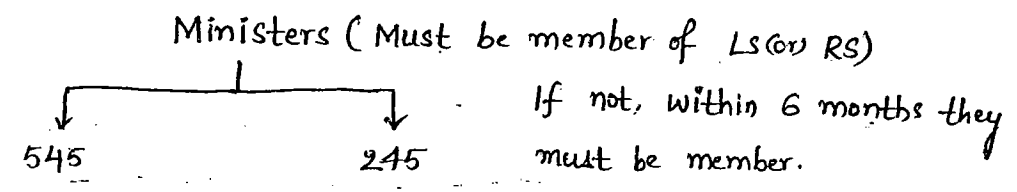 Ministers ( Must be member of LS (or) RS)
If not, within 6 months they
545 245 must be member.